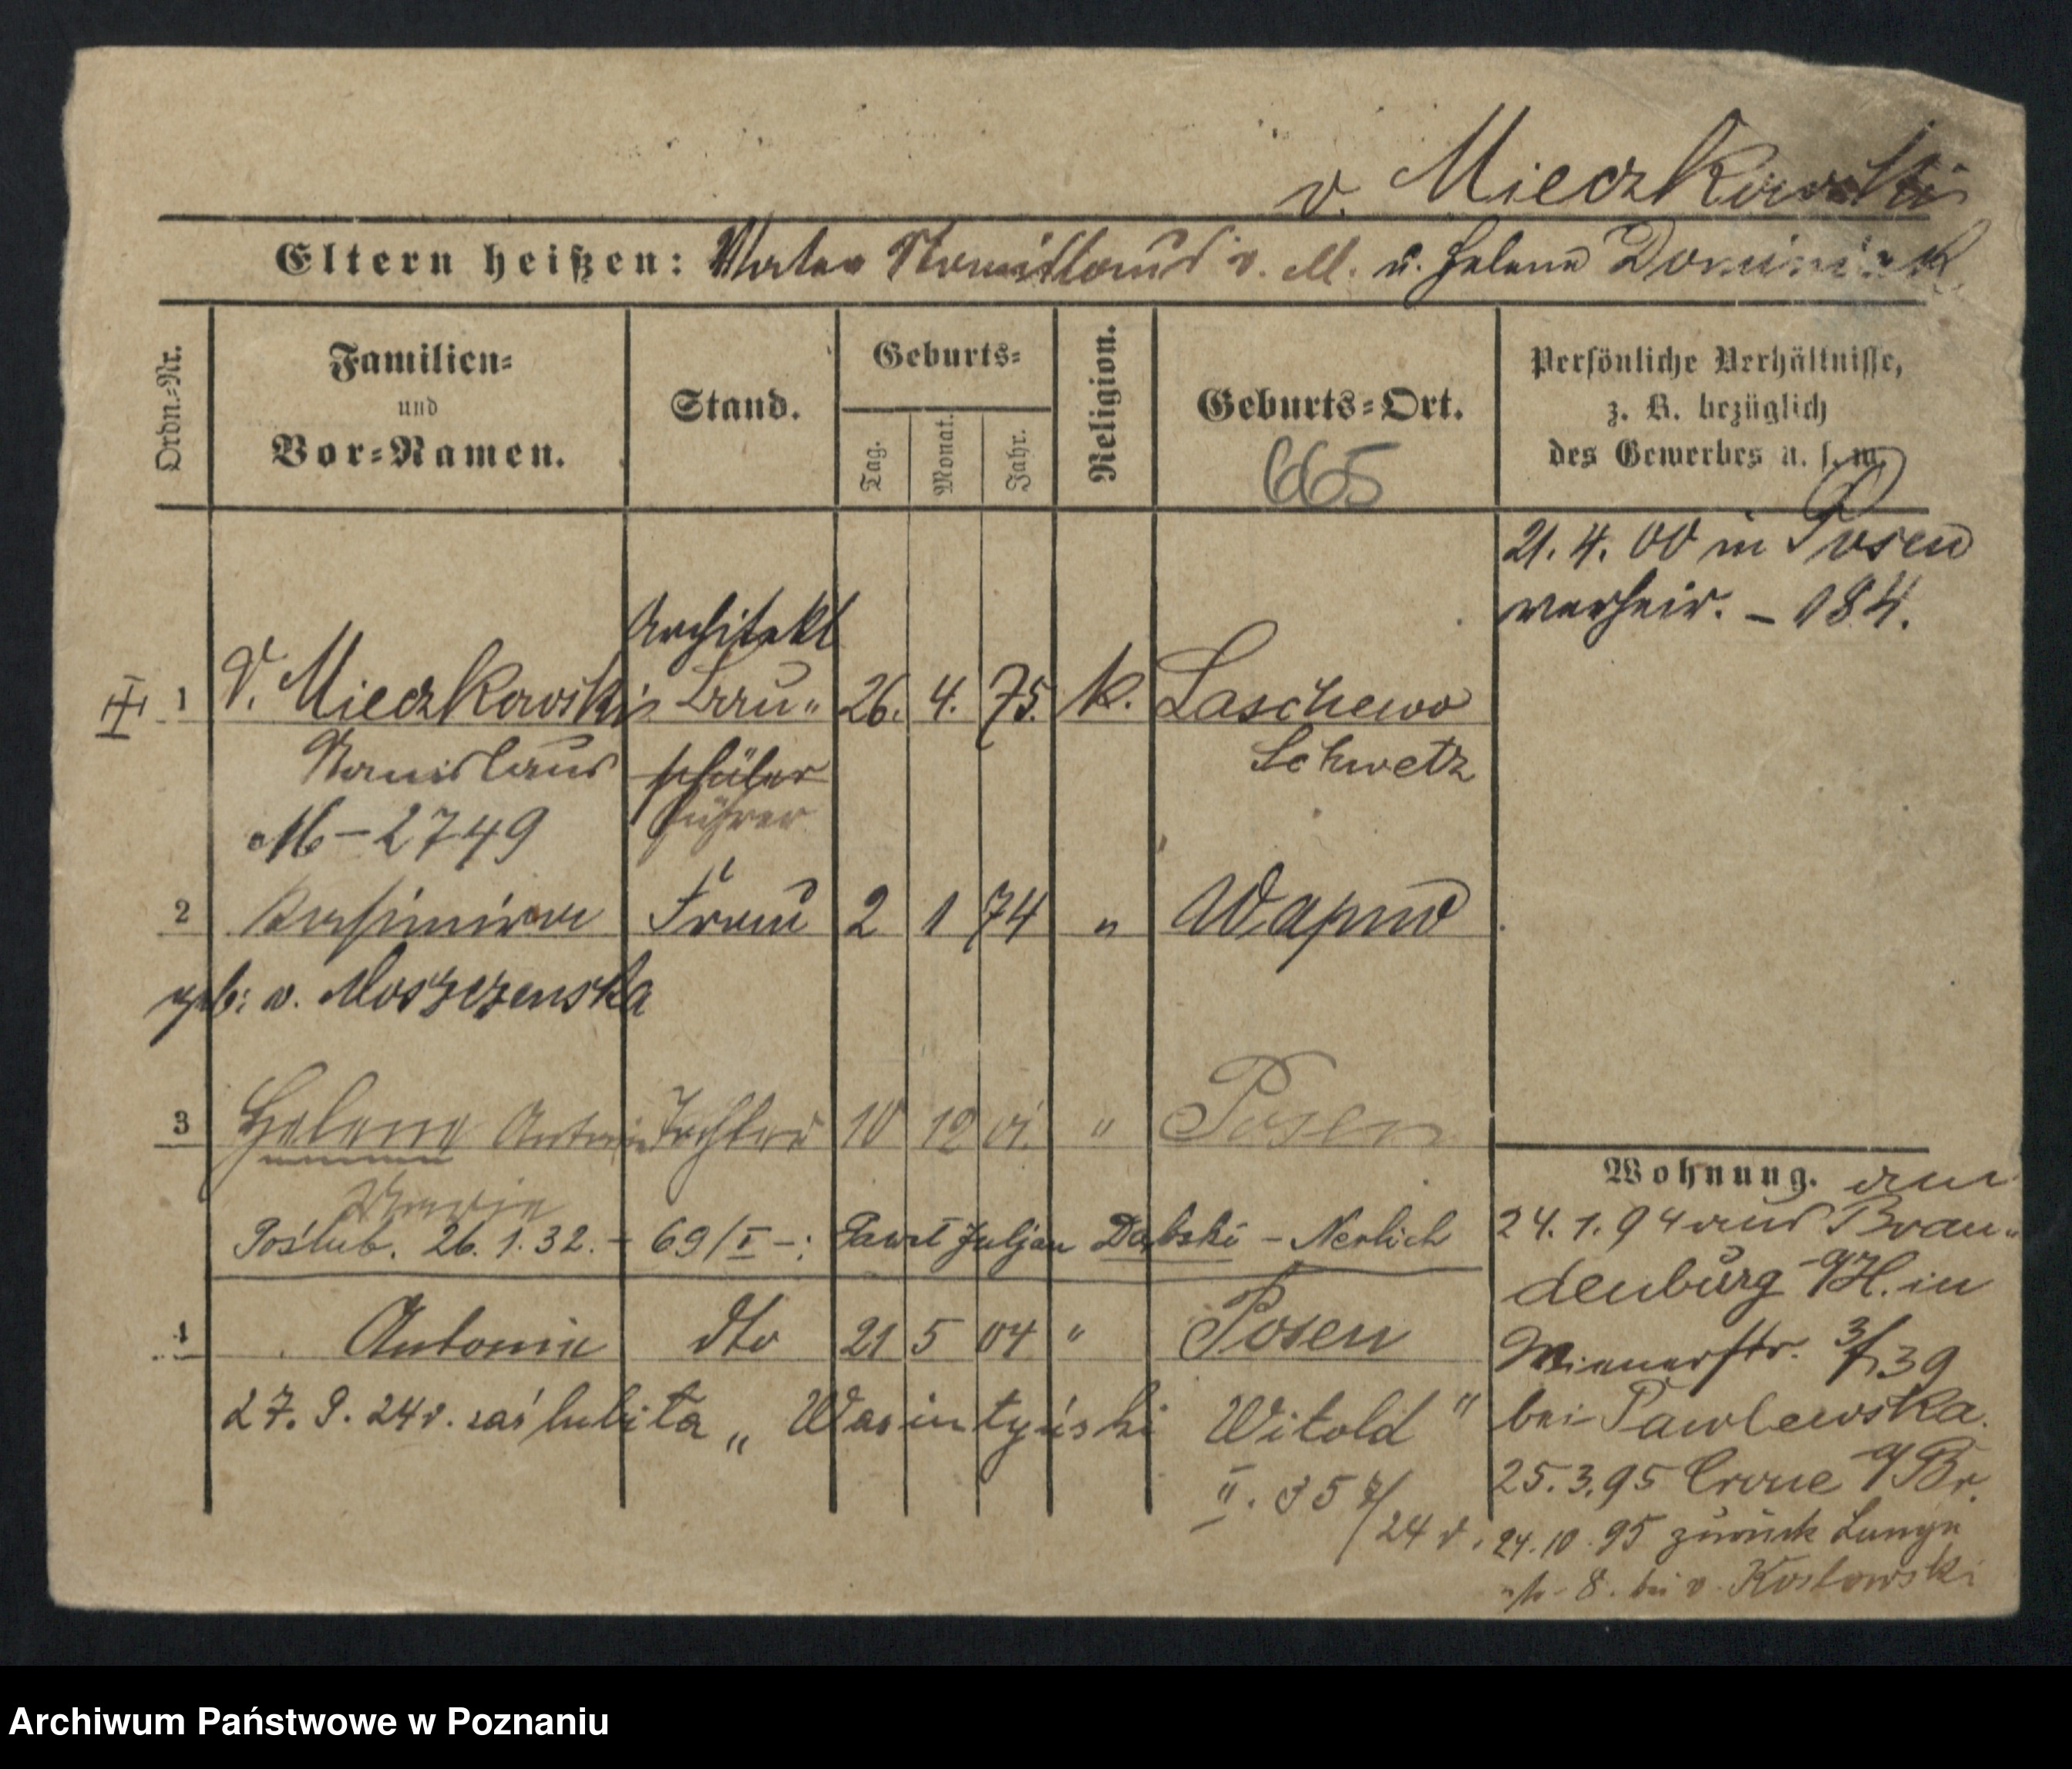 v. Mieczkowski
Eltern heißen: Vater Stanislaus v. M. u. Helene Dominick
Ordn.-Nr.
Familien- und Vor-Namen.
Stand.
Geburts-
Tag.
Monat.
Jahr.
Religion.
Geburts-Ort.
665
Persönliche Verhältnisse,
z. B. bezüglich
des Gewerbes u. s. w.
21. 4. 00 in Posen
verheir. – 184.
Architekt
1 v. Mieczkowski Bau- 26. 4. 75. k. Laschewo
Stanislaus schüler Schwetz
führer
M – 2749
2 Kasimira Frau 2 1 74 " Wapno
geb: v. Moszczenska
3 Helene Antonie Tochter 10 12 01. " Posen
Maria
Poślub. 26. 1. 32. – 69/I –: Paweł Juljan Dąbski – Nerlich
4 Antonie dto 21 5 04 " Posen
27. 9. 24 r. zaślubiła „Wasintyński Witold"
II. 857/24 r.
Wohnung. am
24. 1. 94 aus Bran-
denburg a/H. in
Wienerstr. 3/39
bei Pawlewska.
25. 3. 95 Crone a/Br.
24. 10. 95 zurück Lange
str. 8. bei v. Koslowski
Archiwum Państwowe w Poznaniu